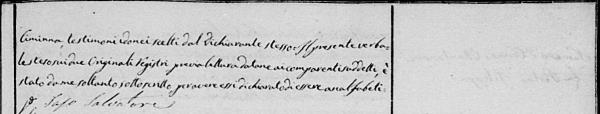 Ciminna, testimoni idonei scelti dal Dichiarante stesso = Il presente verba-
le steso sui due Originali registri previa lettura datane ai comparenti suddetti, è
stato da me soltanto sottoscritto, per avere essi dichiarato di essere analfabeti.
Salvatore